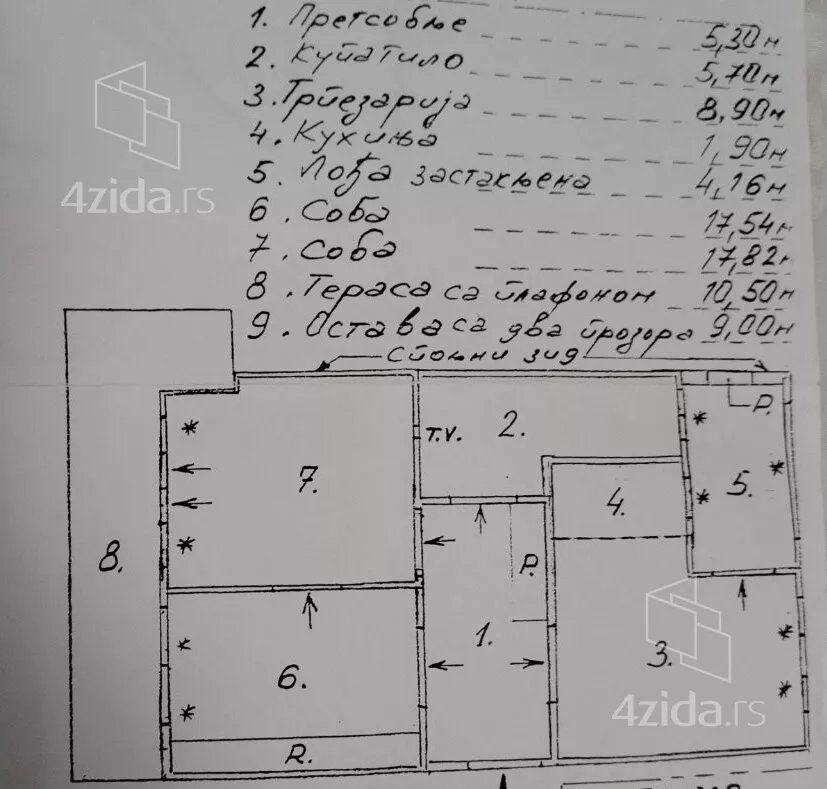 1. Претсобље 5,30м
2. Купатило 5,70м
3. Трпезарија 8,90м
4. Кухиња 1,90м
5. Лођа застакњена 4,16м
6. Соба 17,54м
7. Соба 17,82м
8. Тераса са плафоном 10,50м
9. Остава са два прозора 9,00м
Спољни зид
P.
T.V. 2.
7. 4. 5.
8.
P.
1. 3.
6.
R.
4zida.rs
4zida.rs